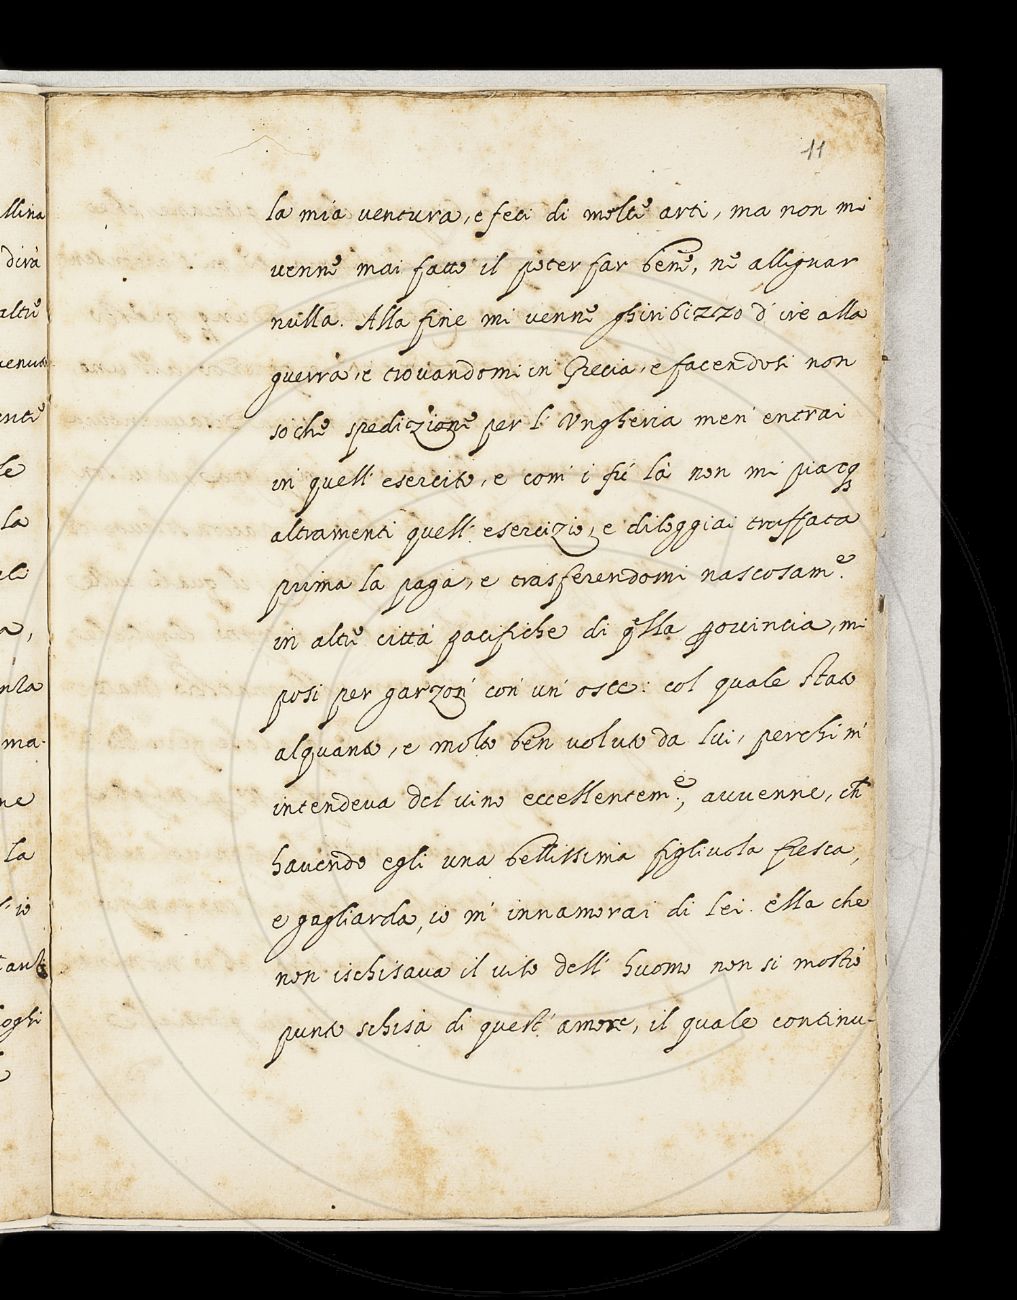 11
la mia ventura, e feci di molte arti, ma non mi
venne mai fatto il poter far bene, ne allignar
nulla. Alla fine mi venne ghiribizzo d'ire alla
guerra, e trovandomi in Grecia, e facendosi non
so che spedizione per l'Ungheria men' entrai
in quell' esercito, e com' i fú là non mi piacq
altramenti quell' esercizio, e diloggiai truffata
prima la paga, e trasferendomi nascosam.e
in altre città pacifiche di qlla provincia, mi
posi per garzon' con un' oste: col quale stato
alquanto, e molto ben voluto da lui, perch i m'
intendeva del vino eccellentem.e, avvenne, ch
havendo egli una bellissima figlivola fresca,
e gagliarda, io m' innamorai di lei. ella che
non ischisava il vito dell' huomo non si mostrò
punto schisa di quest' amore, il quale continu-
llina
dirà
altre
venuto
ente
le
la
a,
nta
ma-
ne
la
l'io
tant
oghi